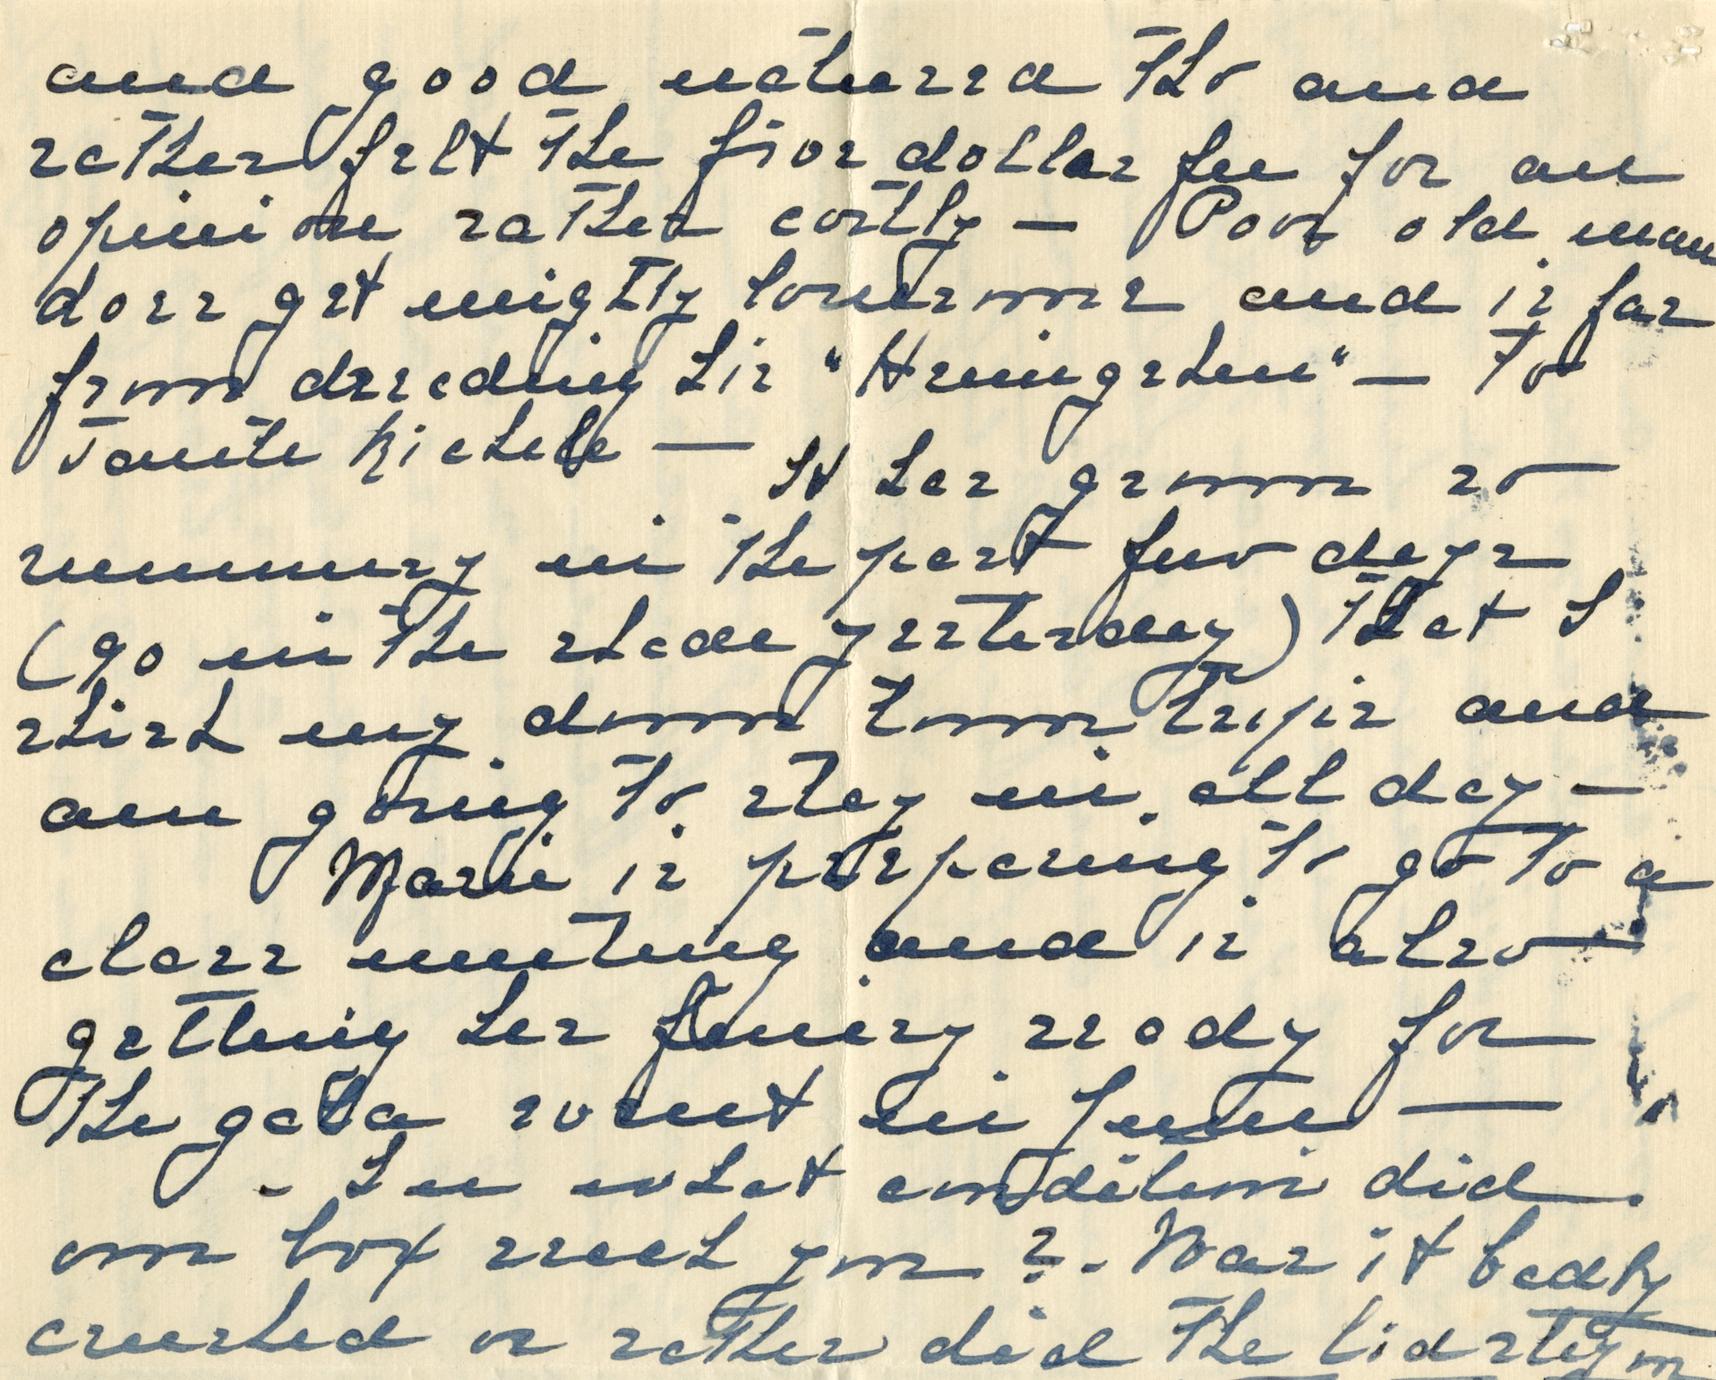 and good natured tho and
rather felt the five dollar fee for an
opinion rather costly — Poor old man
does get mighty lonesome and is far
from dreading his "Heingehen" — To
Tante Richele — It has grown so
summery in the past few days
(90 in the shade yesterday) that I
shish my down town trips and
am going to stay in all day —
Marie is preparing to go to a
class meeting and is also
getting her finery ready for
the gala event in June —
- In what condition did
our box reach you ?. Was it badly
crushed or rather did the lid stay on